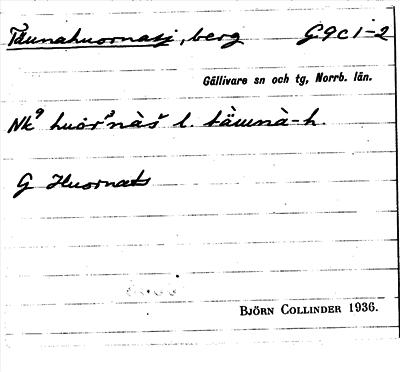 Täunahuornasj, berg G9c1-2
Gällivare sn och tg, Norrb. län.
Nk⁹ huor̀ˀnàš l. tàunà-h.
G Huornats
BJÖRN COLLINDER 1936.